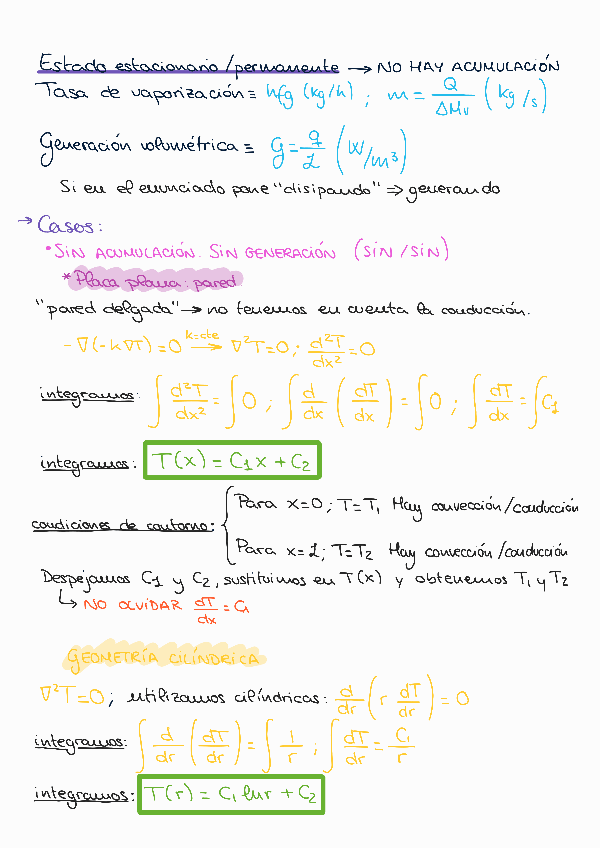 Estado estacionario/permanente → NO HAY ACUMULACIÓN
Tasa de vaporización ≡ hfg (kg/h) ; m = Q/ΔHv (kg/s)
Generación volumétrica ≡ g = q/L (W/m³)
Si en el enunciado pone "disipando" ⇒ generando
→ Casos:
* SIN ACUMULACIÓN. SIN GENERACIÓN (SIN/SIN)
* Placa plana: pared
"pared delgada" → no tenemos en cuenta la conducción.
-∇(-k∇T) = 0 k=cte → ∇²T = 0 ; d²T/dx² = 0
integramos: ∫ d²T/dx² = ∫ 0 ; ∫ d/dx (dT/dx) = ∫ 0 ; ∫ dT/dx = ∫ C₁
integramos: T(x) = C₁x + C₂
condiciones de contorno: { Para x=0 ; T=T₁ Hay convección/conducción
Para x=L ; T=T₂ Hay convección/conducción
Despejamos C₁ y C₂, sustituimos en T(x) y obtenemos T₁ y T₂
↳ NO OLVIDAR dT/dx = C₁
GEOMETRÍA CILÍNDRICA
∇²T=0 ; utilizamos cilíndricas: d/dr (r dT/dr) = 0
integramos: ∫ d/dr (dT/dr) = ∫ 1/r ; ∫ dT/dr = C₁/r
integramos: T(r) = C₁ lnr + C₂